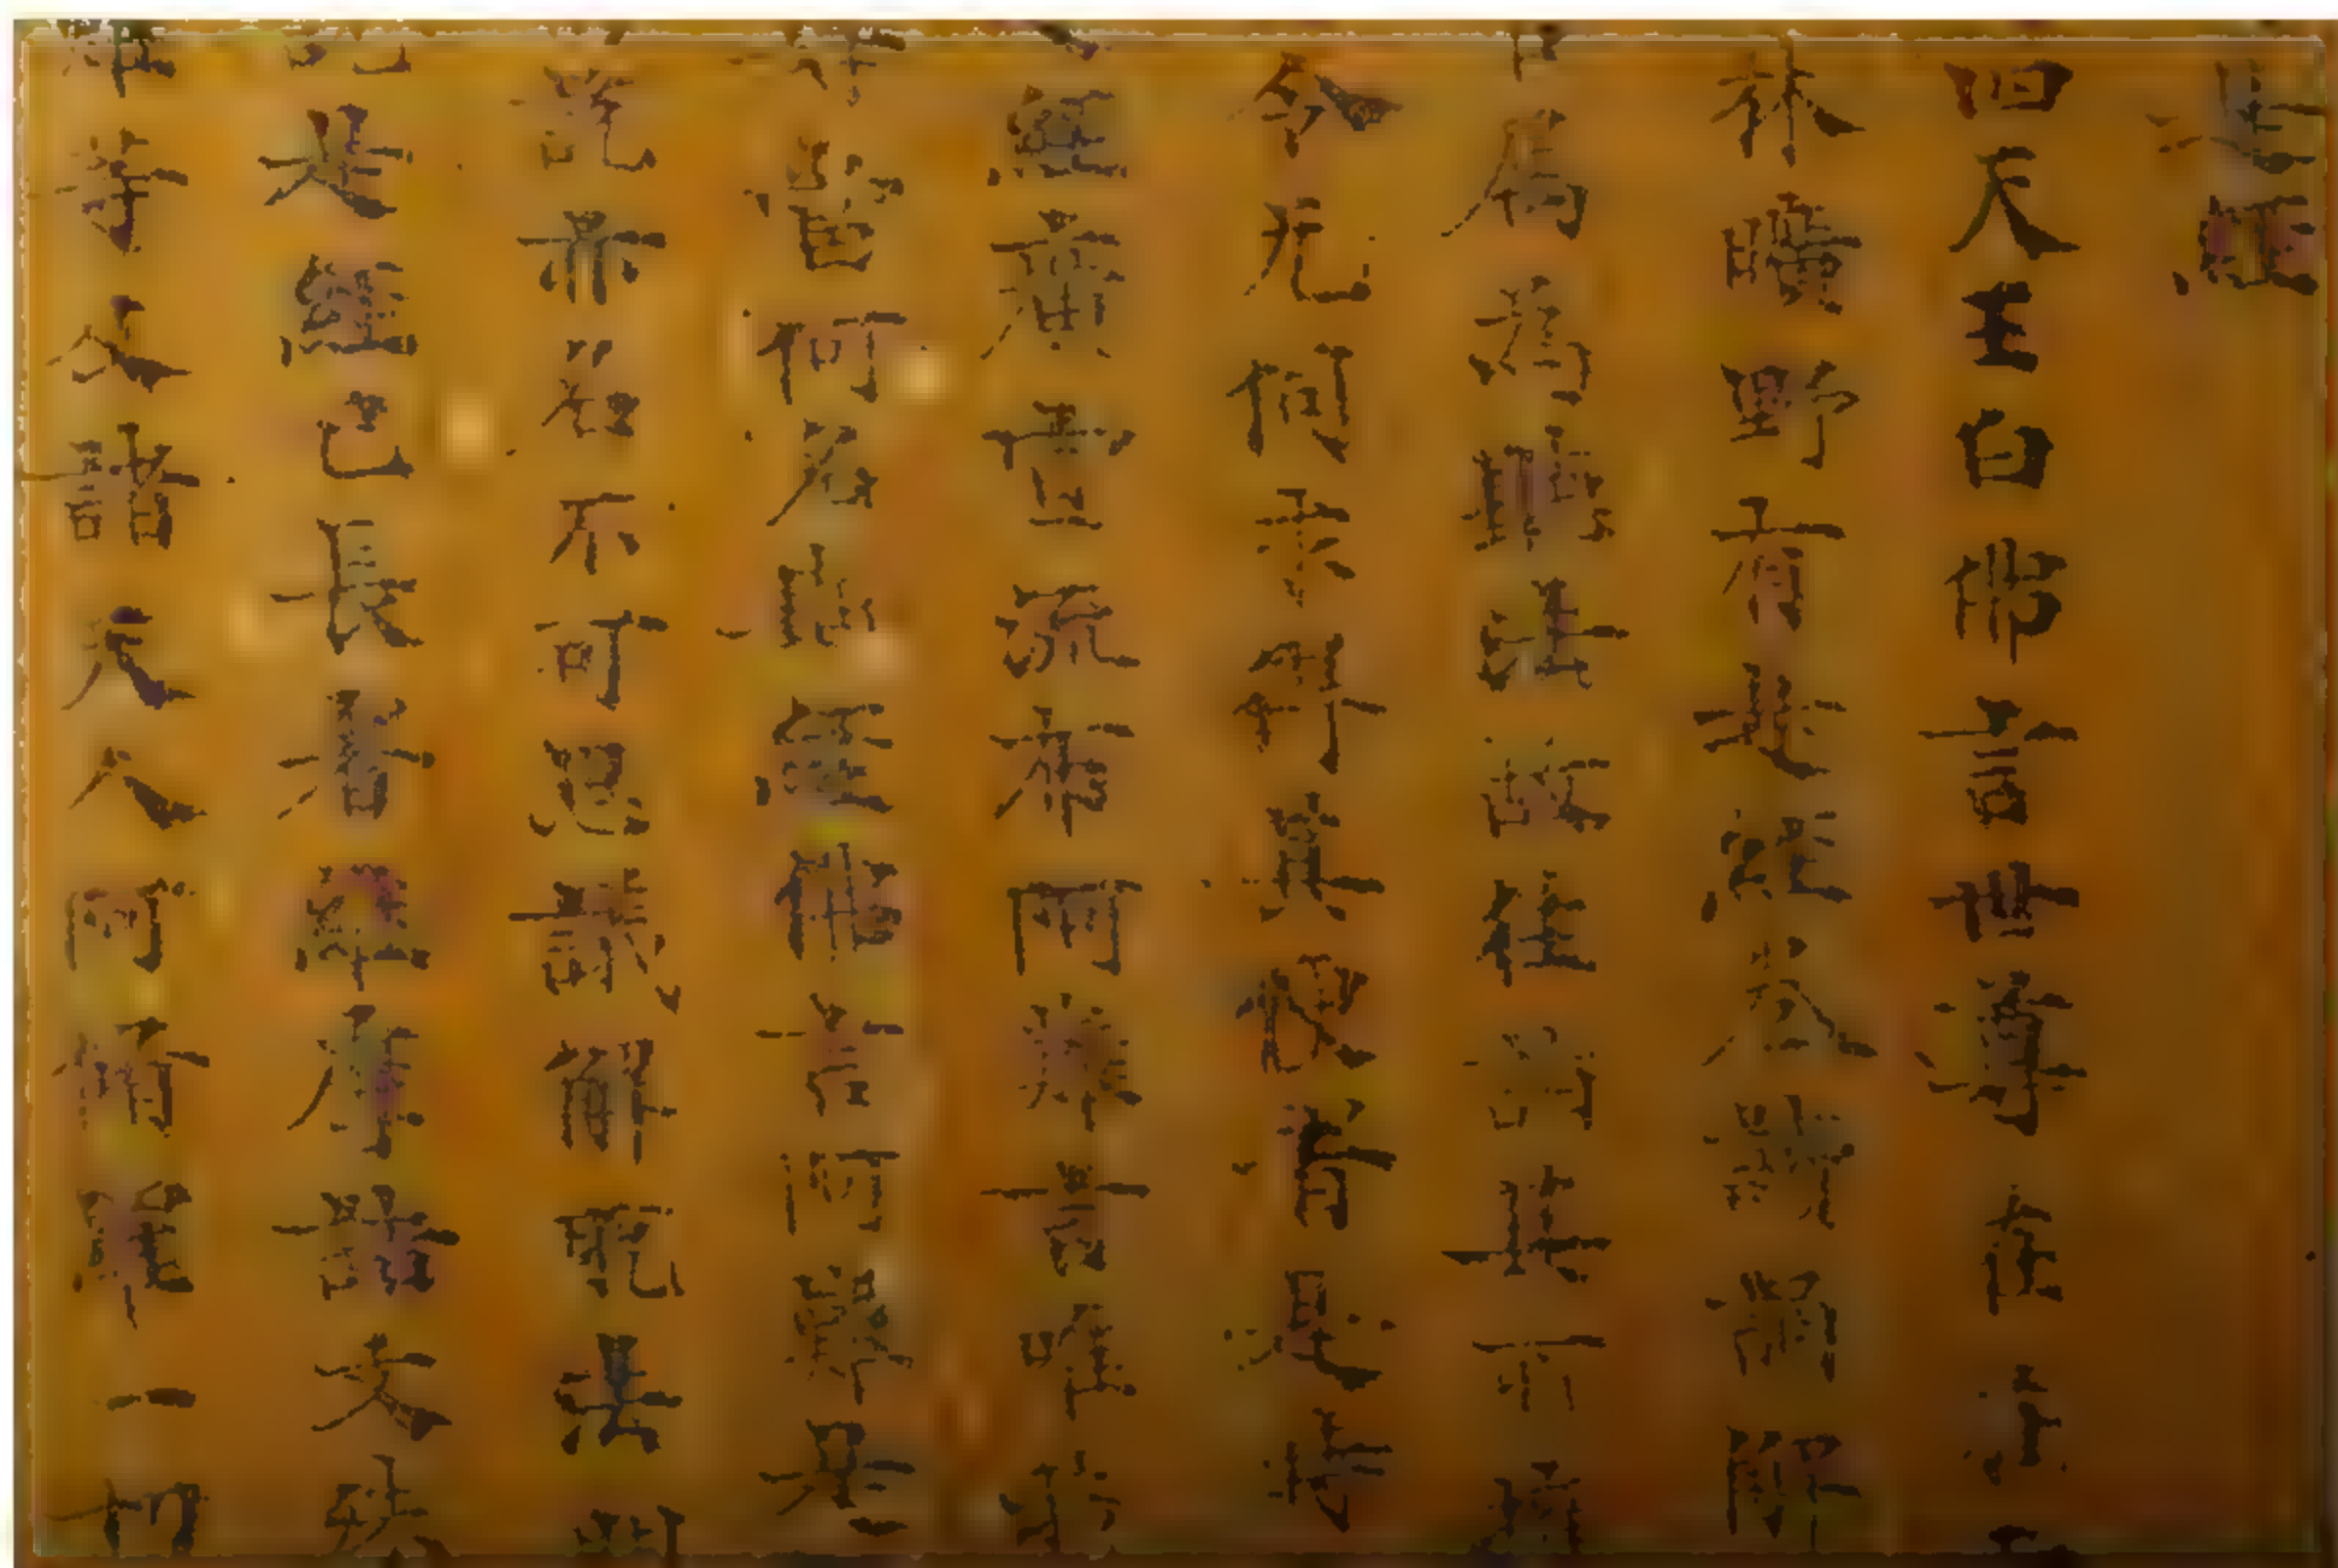 是經
四天王白佛言世尊在在
林曠野有是經卷讀誦解
屬為聽法故往詣其所擁
令无伺求得其便者是時
經廣宣流布阿難言唯
當何名斯經佛言阿難是
說亦名不可思議解脫法門
是經已長者維摩詰文殊
難等及諸天人阿脩羅一切